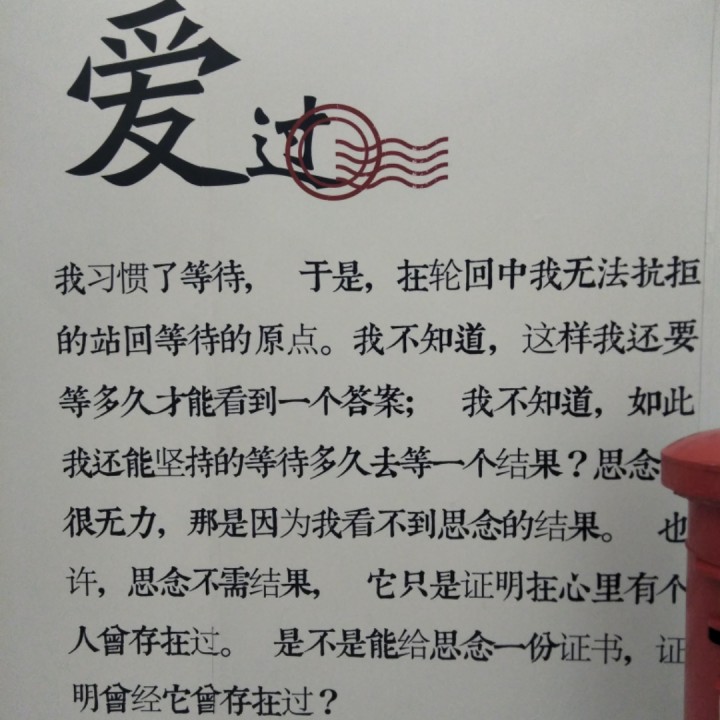 爱过
我习惯了等待， 于是，在轮回中我无法抗拒
的站回等待的原点。我不知道，这样我还要
等多久才能看到一个答案； 我不知道，如此
我还能坚持的等待多久去等一个结果？思念
很无力，那是因为我看不到思念的结果。 也
许，思念不需结果， 它只是证明在心里有个
人曾存在过。 是不是能给思念一份证书，证
明曾经它曾存在过？